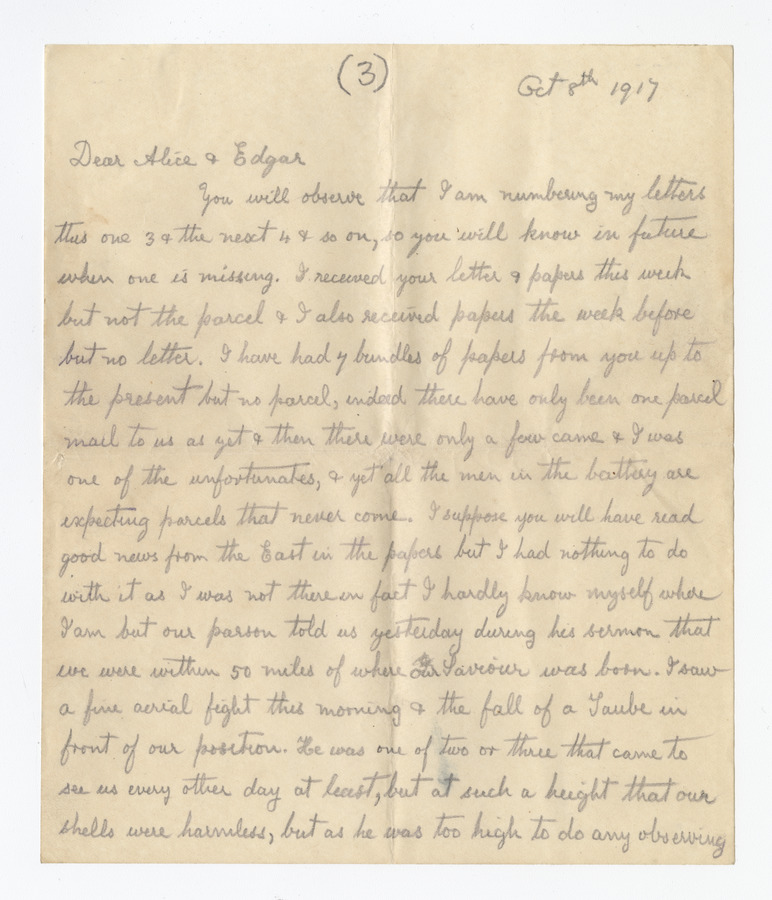 (3)
Oct 8th 1917
Dear Alice & Edgar
You will observe that I am numbering my letters
this one 3 & the next 4 & so on, so you will know in future
when one is missing. I received your letter & papers this week
but not the parcel & I also received papers the week before
but no letter. I have had 7 bundles of papers from you up to
the present but no parcel, indeed there have only been one parcel
mail to us as yet & then there were only a few came & I was
one of the unfortunates, & yet all the men in the battery are
expecting parcels that never come. I suppose you will have read
good news from the East in the papers but I had nothing to do
with it as I was not there in fact I hardly know myself where
I am but our parson told us yesterday during his sermon that
we were within 50 miles of where our Saviour was born. I saw
a fine aerial fight this morning & the fall of a Taube in
front of our position. He was one of two or three that came to
see us every other day at least, but at such a height that our
shells were harmless, but as he was too high to do any observing